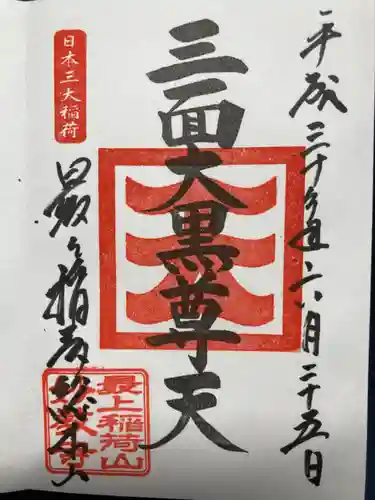 平成三十年六月二十五日
三面大黒尊天
日本三大稲荷
最上稲荷総本山
最上稲荷山